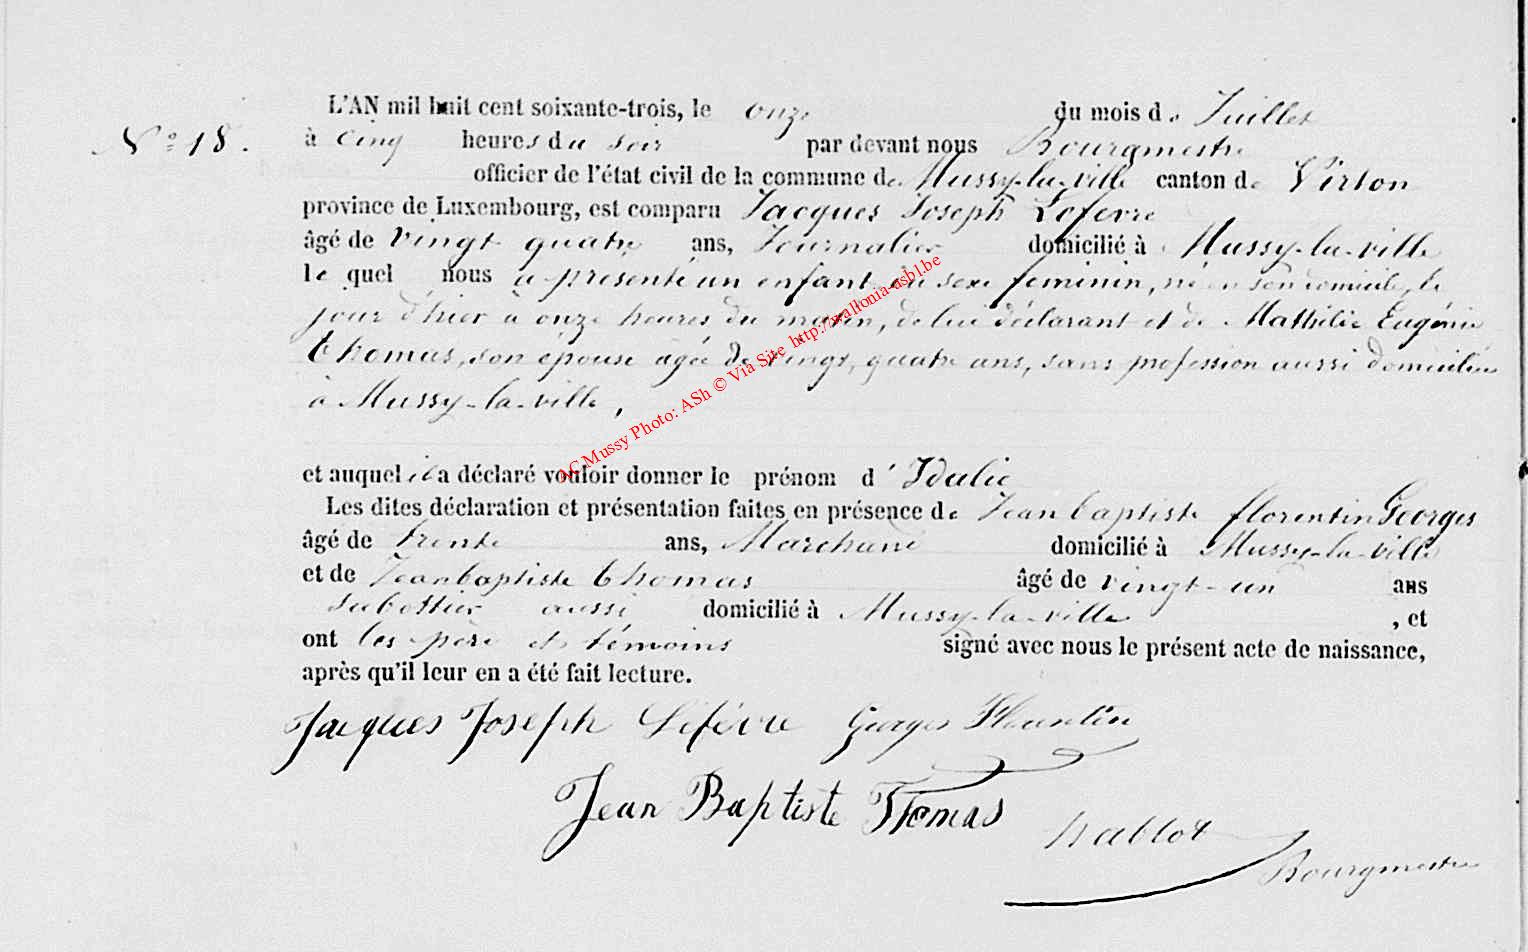 L'AN mil huit cent soixante-trois, le onze du mois de Juillet
N° 18.
à cinq heures du soir par devant nous Bourgmestre
officier de l'état civil de la commune de Mussy-la-ville canton de Virton
province de Luxembourg, est comparu Jacques Joseph Lefevre
âgé de vingt quatre ans, Journalier domicilié à Mussy-la-ville
le quel nous a présenté un enfant du sexe féminin, né en son domicile, le
jour d'hier à onze heures du matin, de lui déclarant et de Mathilde Eugénie
Thomas, son épouse agée de vingt quatre ans, sans profession aussi domiciliée
à Mussy-la-ville,
et auquel il a déclaré vouloir donner le prénom d'Idulie
Les dites déclaration et présentation faites en présence de Jean baptiste florentin Georges
âgé de trente ans, Marchand domicilié à Mussy-la-ville
et de Jean baptiste Thomas âgé de vingt-un ans
Sabottier aussi domicilié à Mussy-la-ville, et
ont les père et témoins signé avec nous le présent acte de naissance,
après qu'il leur en a été fait lecture.
Jacques Joseph Léfévre Georges Florentin
Jean Baptiste Thomas
hablot
Bourgmestre
AC Mussy Photo: ASh © Via Site http://wallonia-asbl.be